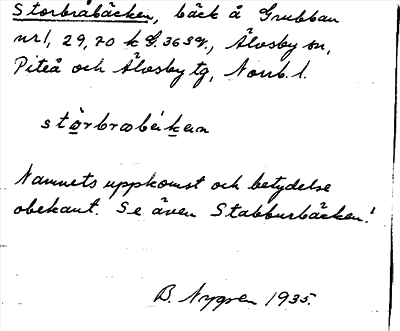 Storbråbäcken, bäck å Grubban
nr1, 29,70 k G. 3639., Älvsby sn,
Piteå och Älvsby tg, Norrb. l.
störbrobékan
Namnets uppkomst och betydelse
obekant. Se även Stabburbäcken!
B. Nygren 1935.